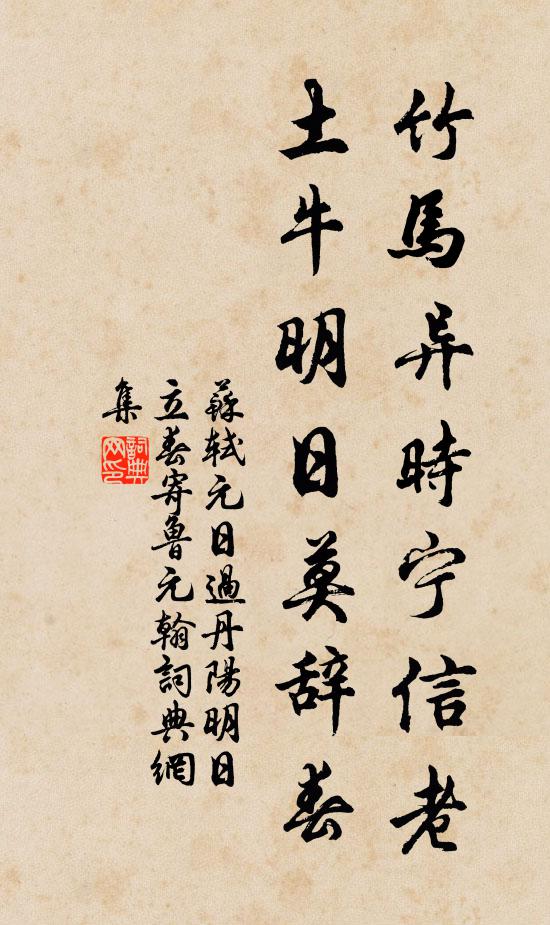 竹馬异時宁信老
土牛明日莫辞春
蘇軾元日過丹陽明日
立春寄魯元翰詞典網
集
詞典
网印